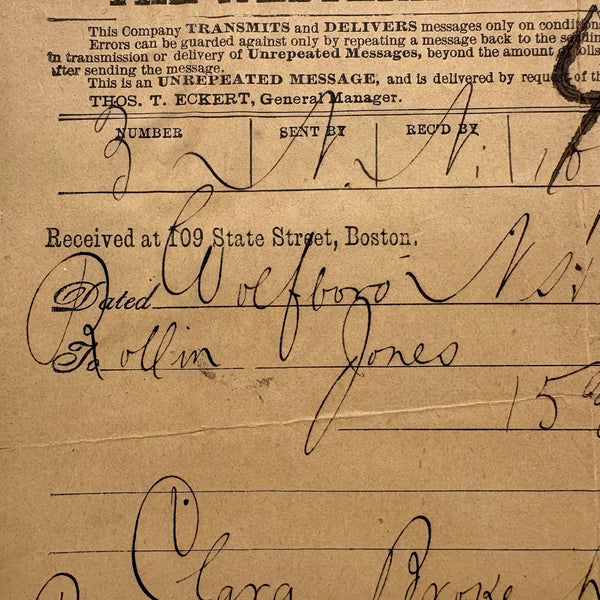 This Company TRANSMITS and DELIVERS messages only on
Errors can be guarded against only by repeating a message back to the
in transmission or delivery of Unrepeated Messages, beyond the amount of
after sending the message.
This is an UNREPEATED MESSAGE, and is delivered by request of
THOS. T. ECKERT, General Manager.
NUMBER SENT BY REC'D BY
3 N. N.
Received at 109 State Street, Boston.
Dated Wolfboro
To Rollin Jones
15
Clara Broke